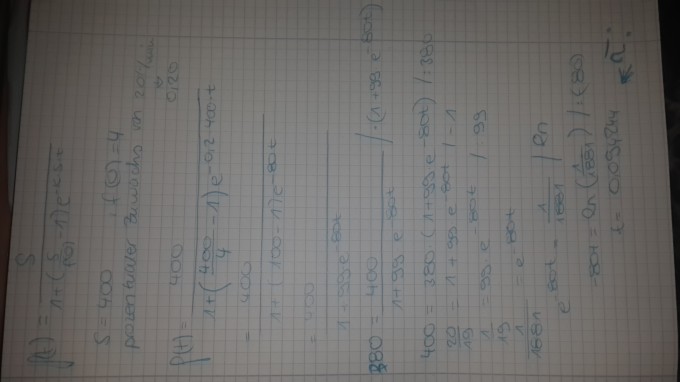 f(t) = S / (1 + (S/f(0) - 1) e^-k·S·t)
S = 400 f(0) = 4
prozentualer Zuwachs von 20%/min
0,20
f(t) = 400 / (1 + (400/4 - 1) e^-0,2·400·t)
= 400 / (1 + (100 - 1) e^-80t)
= 400 / (1 + 99 e^-80t)
380 = 400 / (1 + 99 e^-80t) / ·(1 + 99 e^-80t)
400 = 380 (1 + 99 e^-80t) / :380
20/19 = 1 + 99 e^-80t / -1
1/19 = 99 e^-80t / :99
1/1881 = e^-80t
e^-80t = 1/1881 / ln
-80t = ln(1/1881) / :(-80)
t = 0,094244